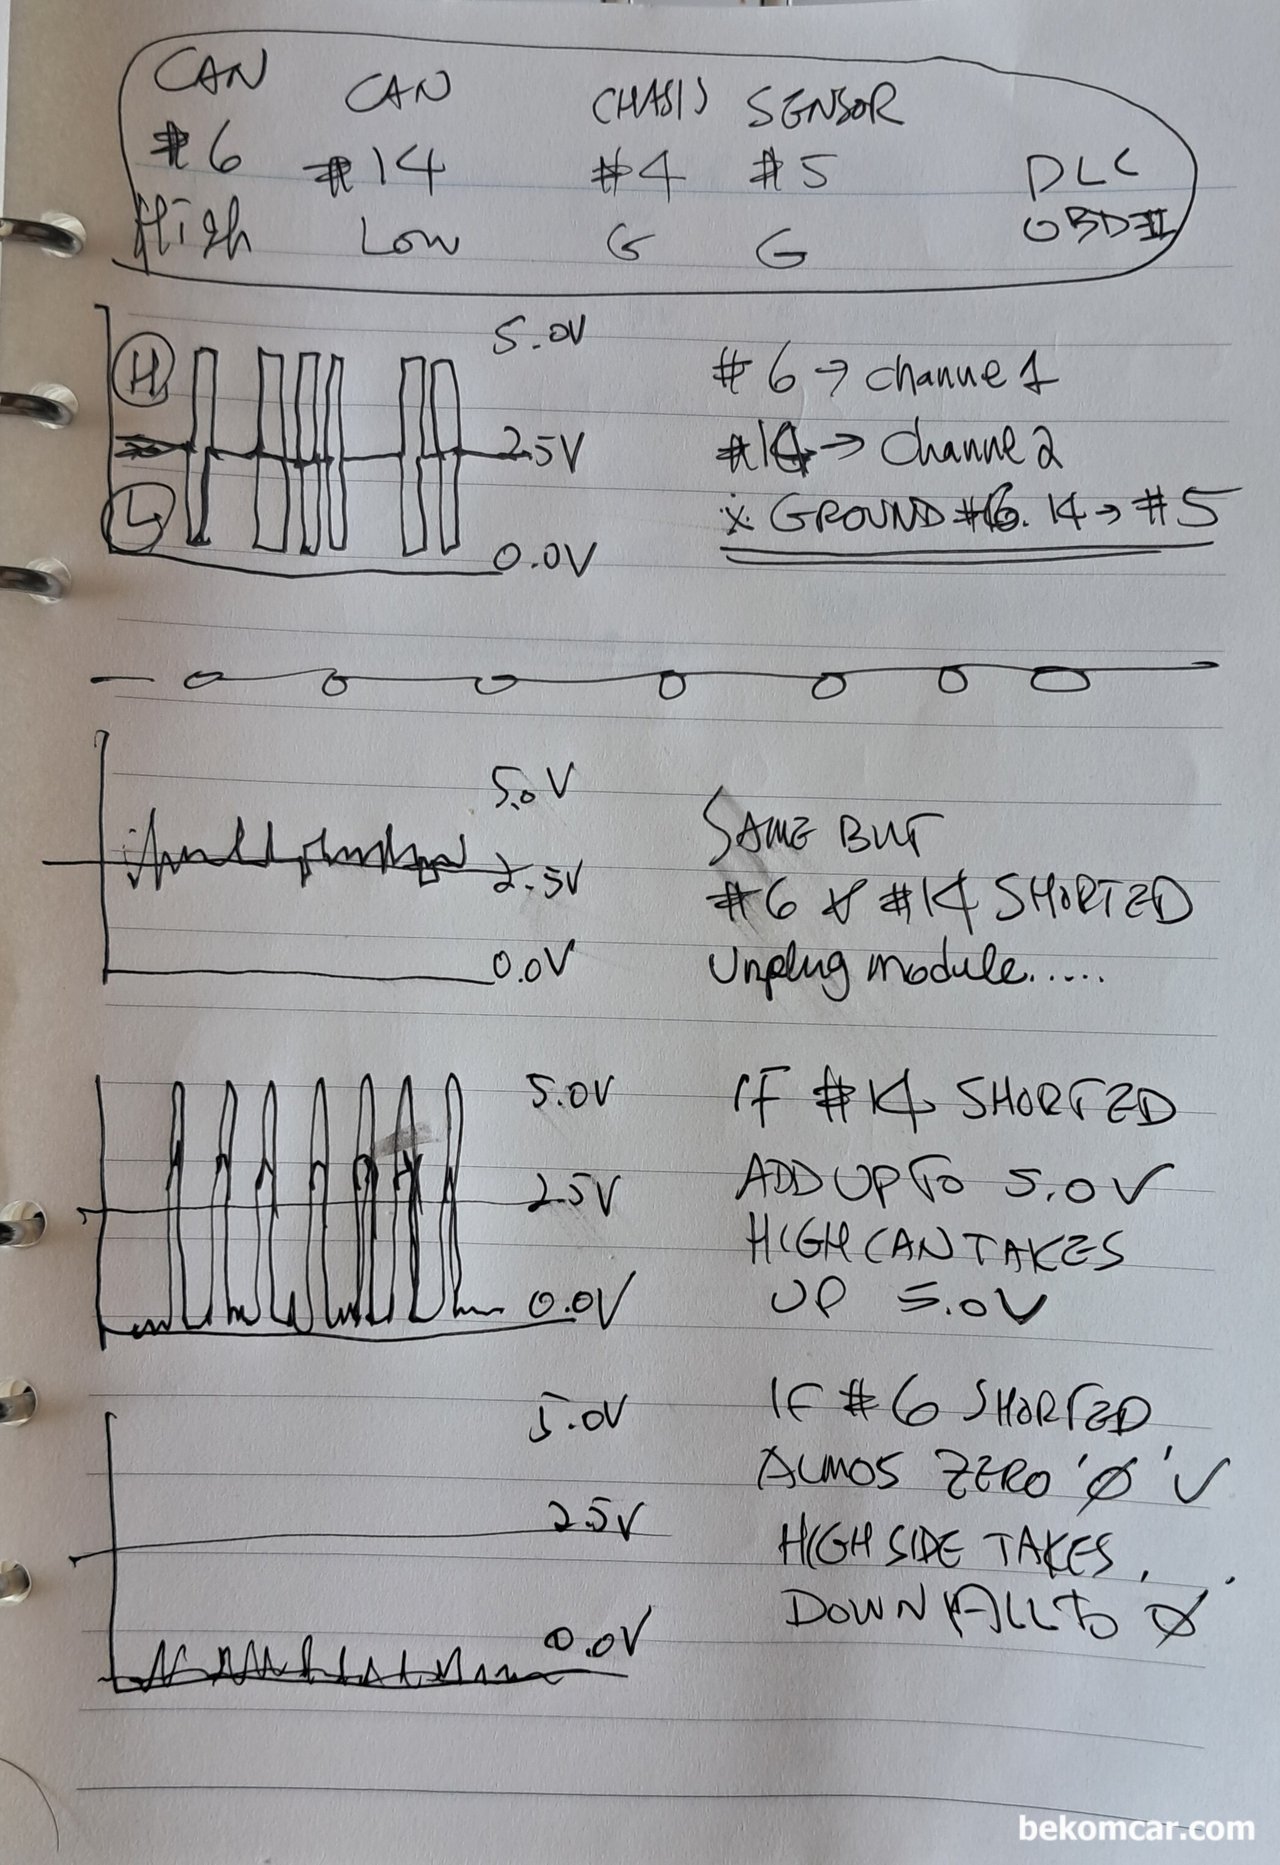 CAN CAN CHASIS SENSOR
#6 #14 #4 #5 DLC
High LOW G G OBDII
H 5.0V
#6 → Channe 1
2.5V #14 → Channe 2
L ※ GROUND #6. 14 → #5
0.0V
5.0V
SAME BUT
2.5V #6 & #14 SHORTED
0.0V Unplug module.....
5.0V IF #14 SHORTED
2.5V ADD UP TO 5.0V
HIGH CAN TAKES
0.0V UP 5.0V
5.0V IF #6 SHORTED
ALMOS ZERO 'Ø' V
2.5V HIGH SIDE TAKES
0.0V DOWN ALL TO Ø
bekomcar.com